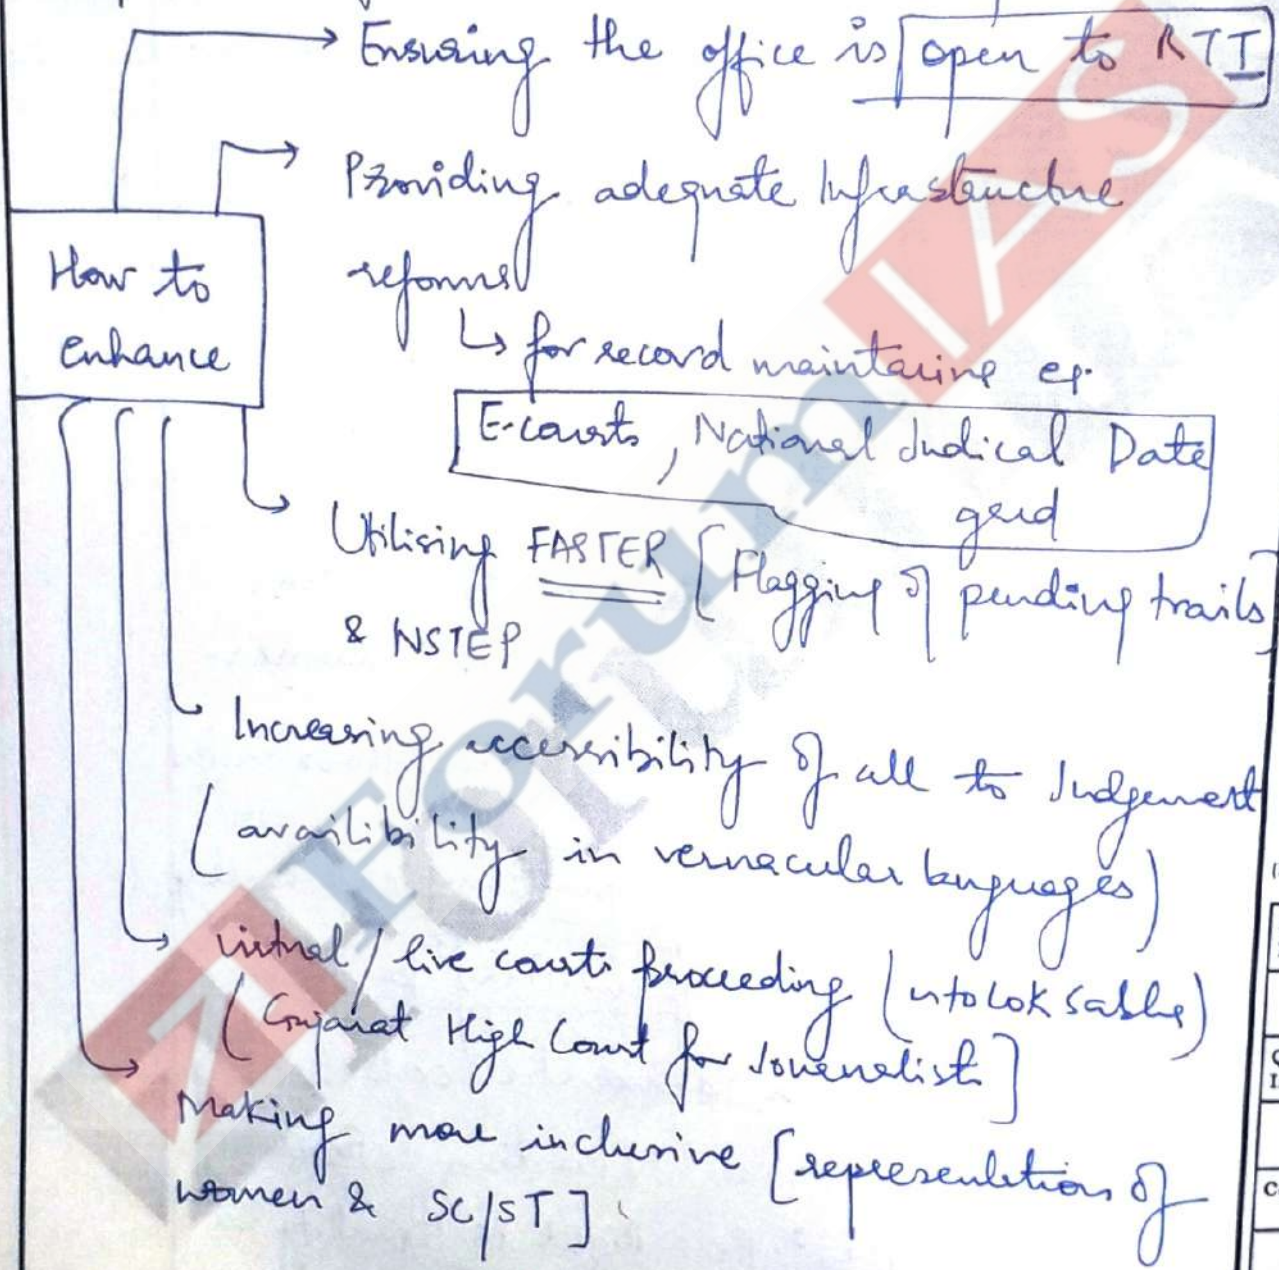 Ensuring the office is open to RTI
Providing adequate Infrastructure
reforms
How to
enhance
↳ for record maintaining eg.
E-courts, National Judical Date
grid
Utilising FASTER [Flagging of pending trails]
& NSTEP
Increasing accessibility of all to Judgement
(availibility in vernacular languages)
virtual / live courts proceeding (
(Gujarat High Court for Journalist]
Making more inclusive [representation of
women & SC/ST]
ForumIAS